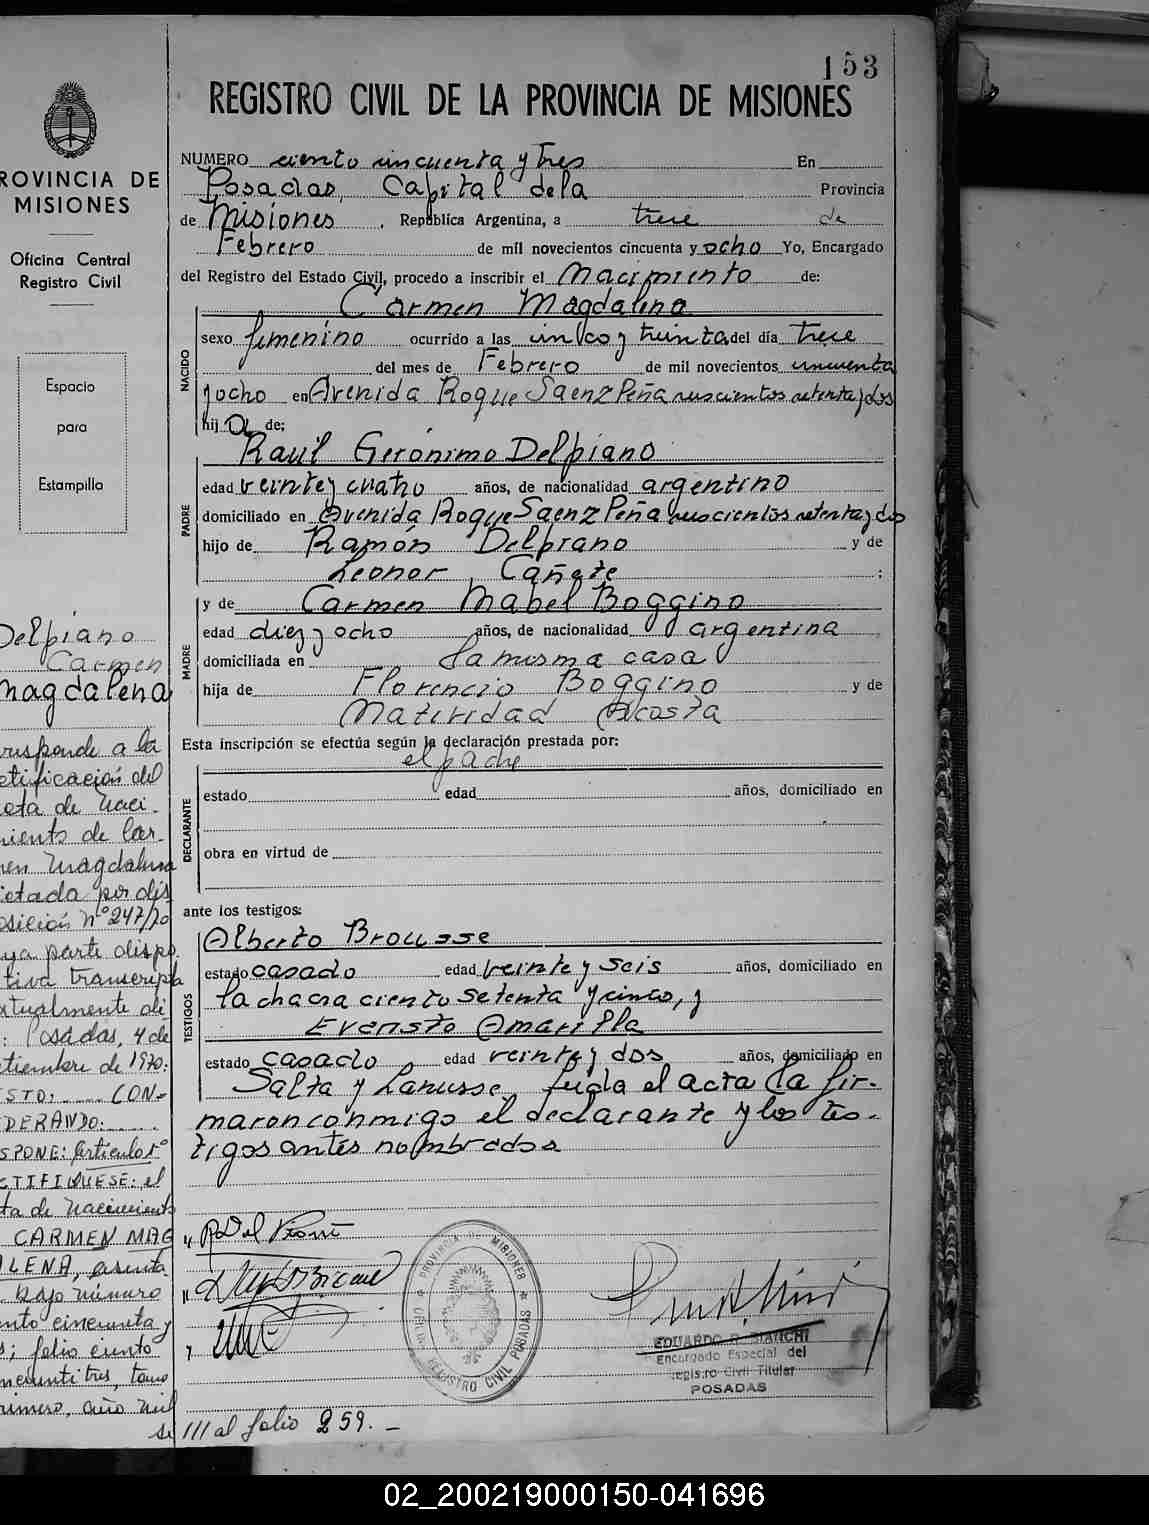 153
REGISTRO CIVIL DE LA PROVINCIA DE MISIONES
NUMERO ciento cincuenta y tres En
Posadas, Capital de la Provincia
de Misiones, República Argentina, a trece de
Febrero de mil novecientos cincuenta y ocho Yo, Encargado
del Registro del Estado Civil, procedo a inscribir el Nacimiento de:
Carmen Magdalena
NACIDO
sexo femenino ocurrido a las cinco y treinta del día trece
del mes de Febrero de mil novecientos cincuenta
y ocho en Avenida Roque Saenz Peña seiscientos setenta y dos
hija de:
Raúl Gerónimo Delpiano
PADRE
edad veinte y cuatro años, de nacionalidad argentino
domiciliado en Avenida Roque Saenz Peña seiscientos setenta y dos
hijo de Ramón Delpiano y de
Leonor Cañete;
y de Carmen Mabel Boggino
MADRE
edad diez y ocho años, de nacionalidad argentina
domiciliada en la misma casa
hija de Florencio Boggino y de
Natividad Acosta
Esta inscripción se efectúa según la declaración prestada por:
el padre
DECLARANTE
estado edad años, domiciliado en
obra en virtud de
ante los testigos:
TESTIGOS
Alberto Brousse
estado casado edad veinte y seis años, domiciliado en
la chacra ciento setenta y cinco, y
Evaristo Amarilla
estado casado edad veinte y dos años, domiciliado en
Salta y Larusse leída el acta la fir-
maron conmigo el declarante y los tes-
tigos antes nombrados
PROVINCIA DE MISIONES
REGISTRO CIVIL POSADAS
EDUARDO R. BIANCHI
Encargado Especial del
Registro Civil Titular
POSADAS
/// al folio 259.-
ROVINCIA DE
MISIONES
Oficina Central
Registro Civil
Espacio
para
Estampilla
Delpiano
Carmen
Magdalena
rresponde a la
ctificación del
acta de Naci-
miento de Car-
men Magdalena
ictada por dis
osición Nº 247/70
uya parte dispo
itiva transcripta
xtualmente di-
: Posadas, 4 de
etiembre de 1970:
ISTO:..... CON-
DERANDO:.....
SPONE: Artículo 1º
CTIFIQUESE: el
ta de nacimiento
CARMEN MAG
LENA, asenta
bajo número
nto cincuenta y
s; folio ciento
ncuentitres, tomo
rimero, año mil
02_200219000150-041696